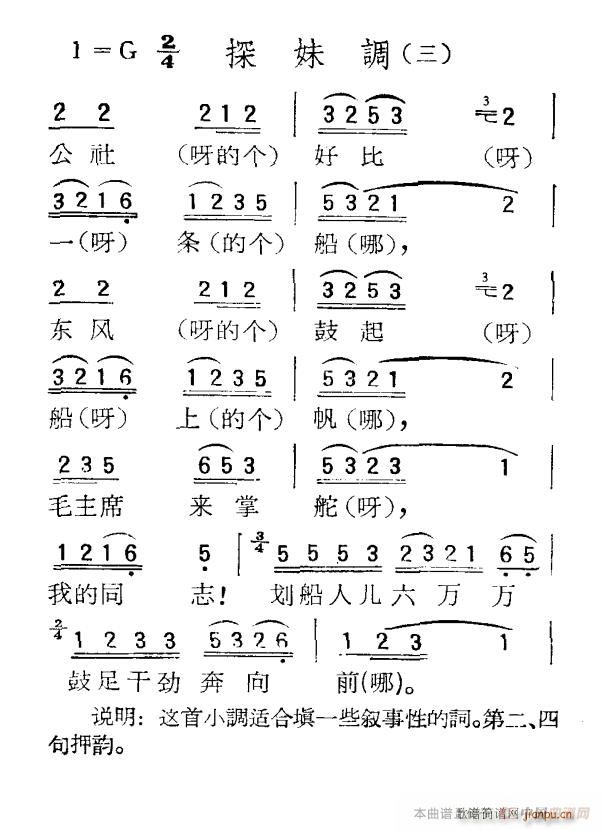 1=G 2/4 探妹調（三）
2 2 2 1 2 | 3 2 5 3 3 2 |
公社 （呀的个） 好比 （呀）
3 2 1 6 1 2 3 5 | 5 3 2 1 2 |
一（呀） 条（的个） 船（哪），
2 2 2 1 2 | 3 2 5 3 3 2 |
东风 （呀的个） 鼓起 （呀）
3 2 1 6 1 2 3 5 | 5 3 2 1 2 |
船（呀） 上（的个） 帆（哪），
2 3 5 6 5 3 | 5 3 2 3 1 |
毛主席 来掌 舵（呀），
1 2 1 6 5 | 3/4 5 5 5 3 2 3 2 1 6 5 |
我的同 志！ 划船人儿六万万
2/4 1 2 3 3 5 3 2 6 | 1 2 3 1 |
鼓足干劲奔向 前（哪）。
说明：这首小調适合塡一些叙事性的詞。第二、四
句押韵。
jianpu.cn